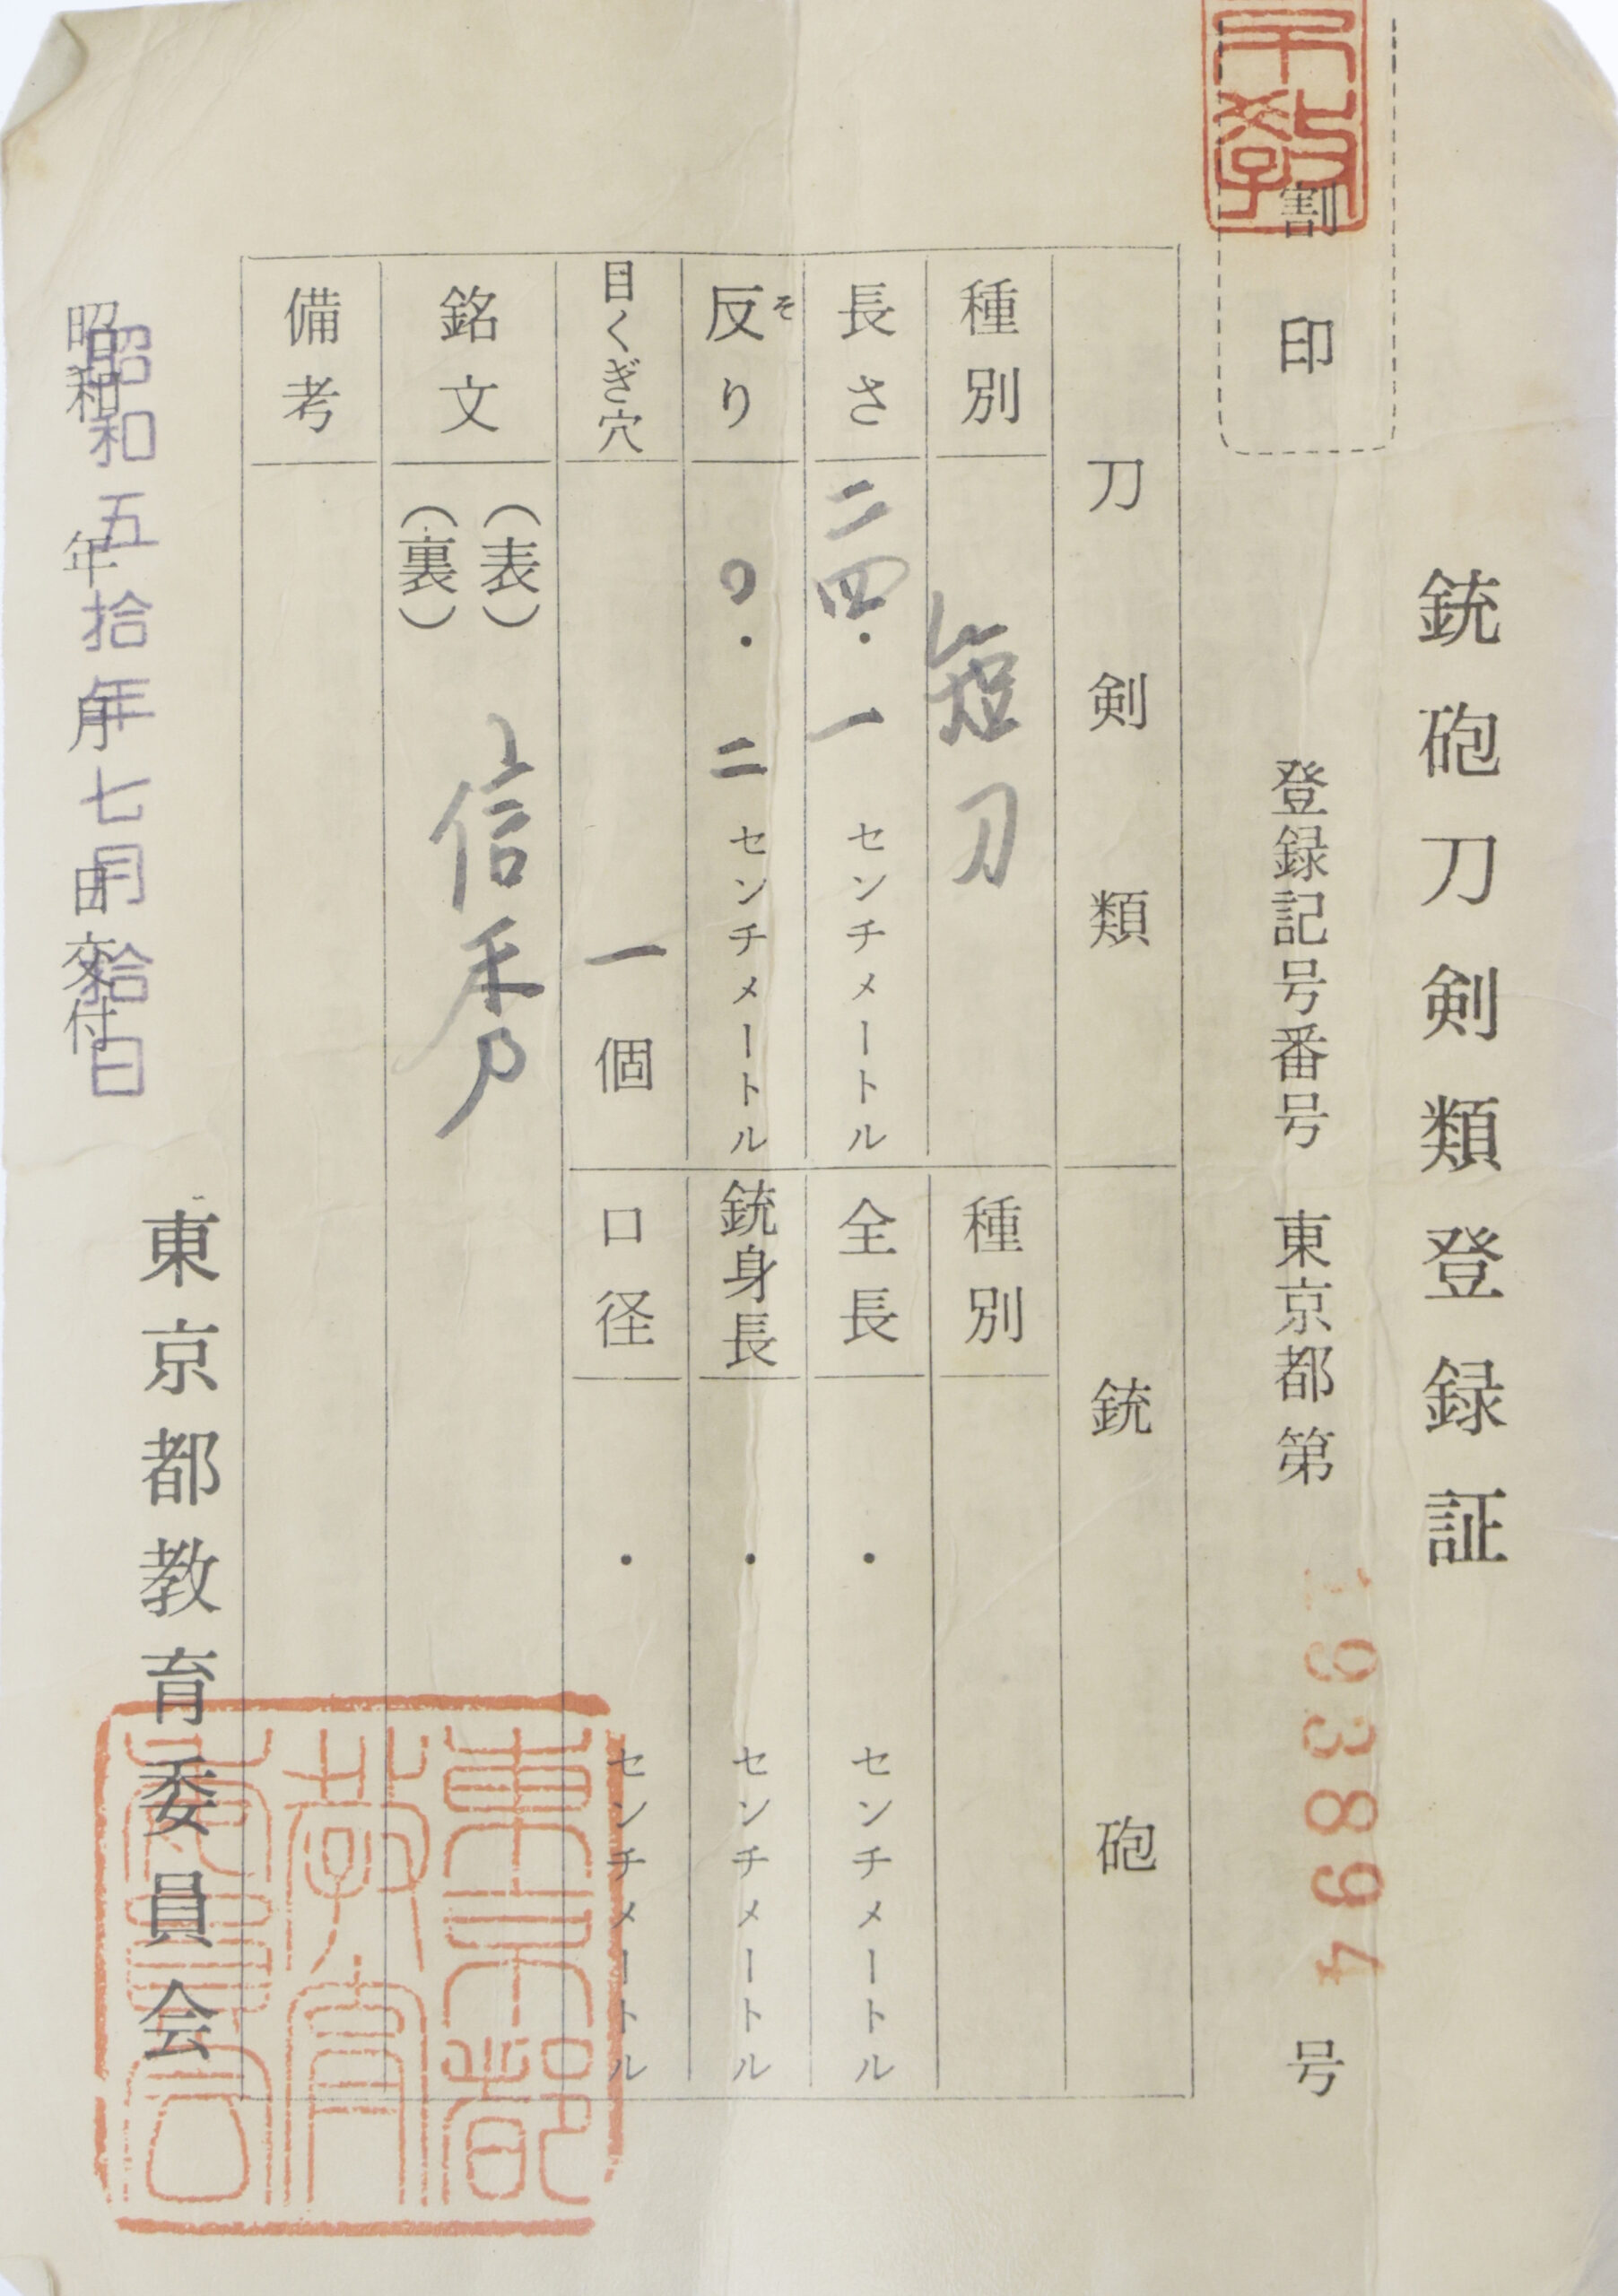 銃砲刀剣類登録証
割印
登録記号番号 東京都 第 193894 号
刀剣類
種別 短刀
長さ 二四・一 センチメートル
反り そ 〇・二 センチメートル
目くぎ穴 一個
銘文 (表) 信秀
(裏)
備考
銃砲
種別
全長 ・ センチメートル
銃身長 ・ センチメートル
口径 ・ センチメートル
昭和 年 月 日交付
昭和五拾年七月拾日
東京都教育委員会
東京都
教育
委員会